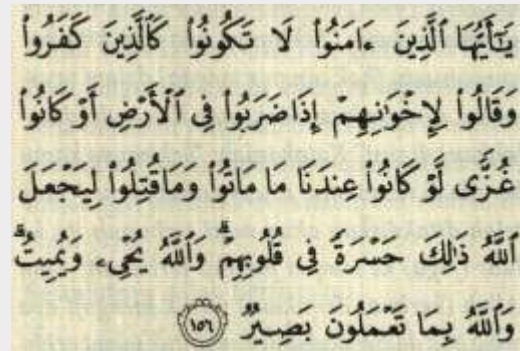 يَـٰٓأَيُّهَا ٱلَّذِينَ ءَامَنُوا۟ لَا تَكُونُوا۟ كَٱلَّذِينَ كَفَرُوا۟
وَقَالُوا۟ لِإِخْوَٰنِهِمْ إِذَا ضَرَبُوا۟ فِى ٱلْأَرْضِ أَوْ كَانُوا۟
غُزًّى لَّوْ كَانُوا۟ عِندَنَا مَا مَاتُوا۟ وَمَا قُتِلُوا۟ لِيَجْعَلَ
ٱللَّهُ ذَٰلِكَ حَسْرَةً فِى قُلُوبِهِمْ ۗ وَٱللَّهُ يُحْىِۦ وَيُمِيتُ ۗ
وَٱللَّهُ بِمَا تَعْمَلُونَ بَصِيرٌ ١٥٦